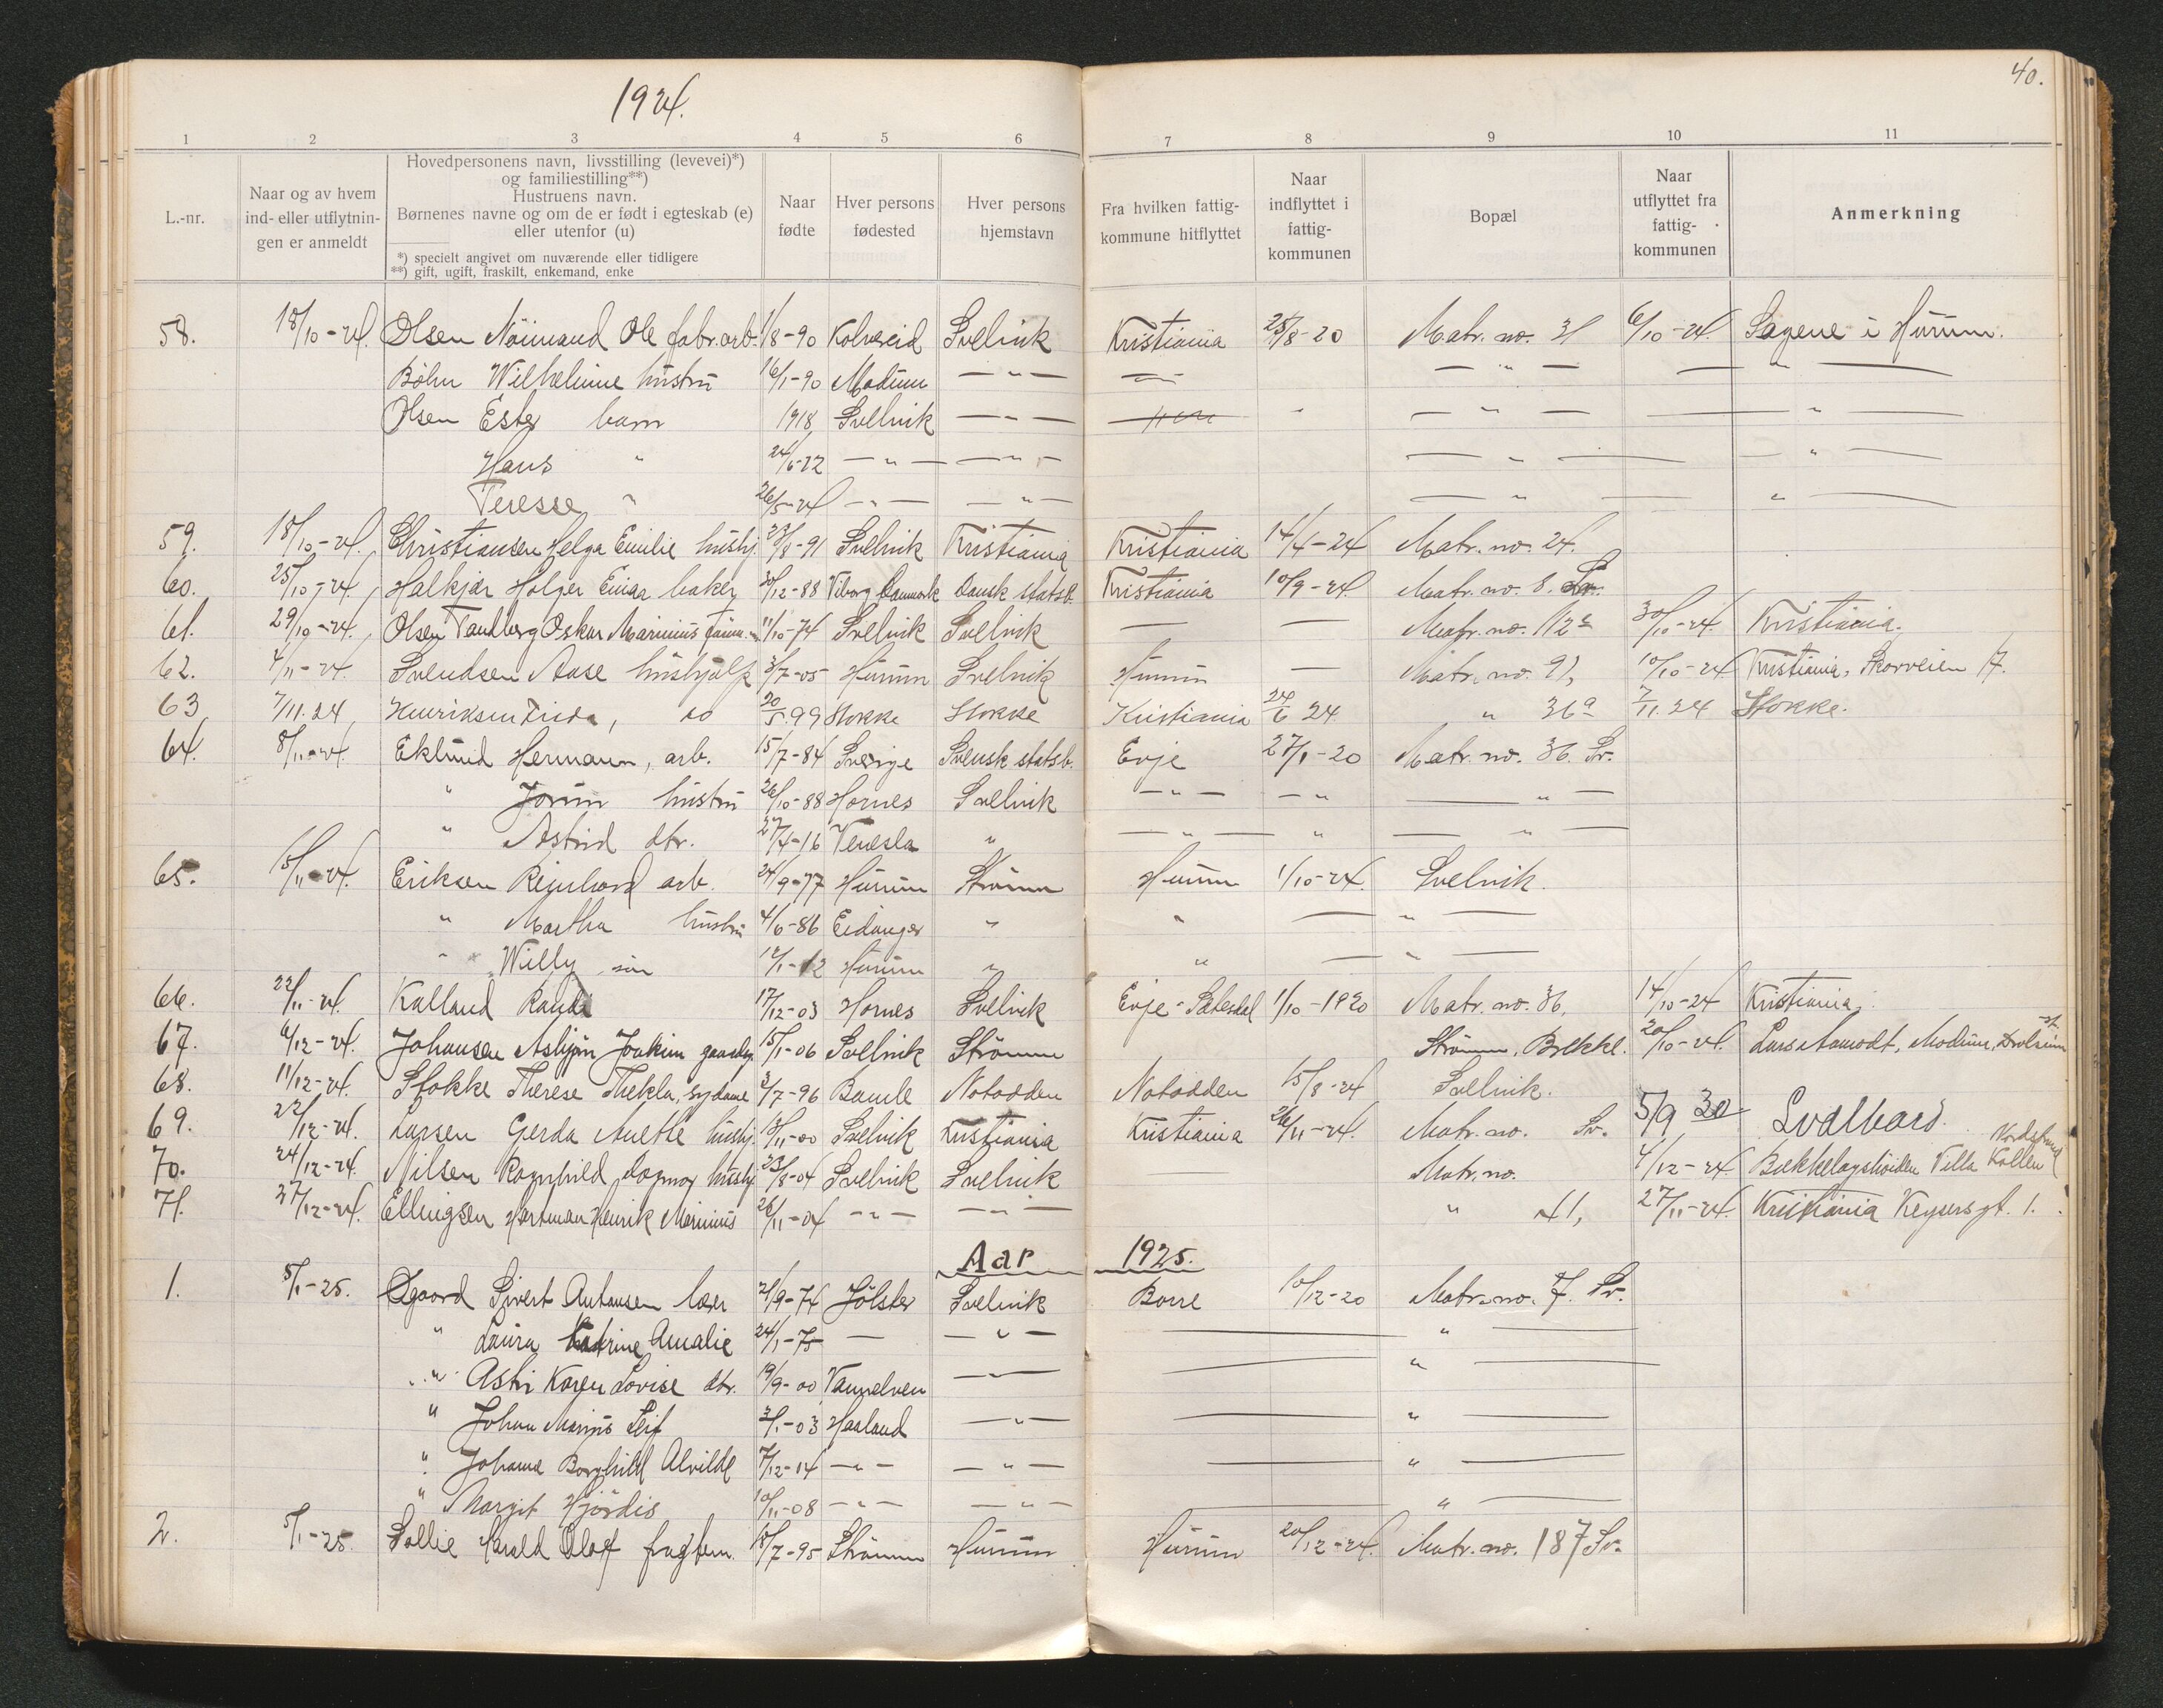 1924.
40.
1 2 3 4 5 6 7 8 9 10 11
L.-nr.
Naar og av hvem
ind- eller utflytnin-
gen er anmeldt
Hovedpersonens navn, livsstilling (levevei)*)
og familiestilling**)
Hustruens navn.
Børnenes navne og om de er født i egteskab (e)
eller utenfor (u)
*) specielt angivet om nuværende eller tidligere
**) gift, ugift, fraskilt, enkemand, enke
Naar
fødte
Hver persons
fødested
Hver persons
hjemstavn
Fra hvilken fattig-
kommune hitflyttet
Naar
indflyttet i
fattig-
kommunen
Bopæl
Naar
utflyttet fra
fattig-
kommunen
Anmerkning
58. 18/10-24. Olsen Ole fabr.arb. 1/8-90 Kolvereid Svelvik Kristiania 25/8-20 Matr. no. 31 6/10-24. Sagene i Hurum.
Böhn Wilhelmine hustru 16/1-90 Modum — " — — " — — " —
Olsen Ester barn 1918 Svelvik — " — " — " — — " —
Hans " 24/6-22 — " — — " — — " — — " —
Teresse " 26/5-24 — " — — " — — " — — " —
59. 18/10-24. Christiansen Helga Emilie hushj. 23/8-91 Svelvik Kristiania Kristiania 14/4-24 Matr. no. 24.
60. 25/10-24. Halkjær Holger Einar baker 20/12-88 Viborg Danmark Dansk statsb. Kristiania 10/9-24. Matr. no. 8. Sv.
61. 29/10-24. Olsen Tandberg Oskar Marinius 11/10-74 Svelvik Svelvik — — Matr. no. 112 30/10-24. Kristiania.
62. 4/11-24. Svendsen Aase hushjælp 3/7-05 Hurum Svelvik Hurum — Matr. no. 91, 10/10-24 Kristiania, Skovveien 17.
63 7/11.24 Henriksen Frida, do 20/5.99 Stokke Stokke Kristiania 24/6 24 " 36a 7/11.24 Stokke.
64. 8/11-24. Eklund Hermann, arb. 15/7-84 Sverige Svensk statsb. Evje 27/1-20 Matr. no. 36. Sv.
" Jorun hustru 26/10-88 Hornes Svelvik — " — — " — " —
" Astrid dtr. 27/4-16 Venesla " — " — " — " —
65. 15/11-24. Eriksen Reinhard arb. 24/9-77 Hurum Strömm Hurum 1/10-24. Svelvik.
" Martha hustru 4/6-86 Eidanger " " — " —
" Willy sön 12/1-12 Hurum " " — " —
66. 22/11-24. Kalland Randi 17/12-03 Hornes Svelvik Evje - Sætesdal 1/10-1920 Matr. no. 36. 14/10-24 Kristiania.
67. 6/12-24. Johansen Asbjørn Joakim gaardsg. 15/1-06 Svelvik Strömm Strömm, Brekke. 20/10-24. Lars Aamodt, Modum, Drolsum st.
68. 11/12-24. Stokke Therese Thekla, sydame 3/7-96 Bamle Notodden Notodden 15/8-24 Svelvik.
69. 22/12-24. Larsen Gerda Anette hushj. 13/11-00 Svelvik Kristiania Kristiania 26/11-24. Matr. no. Sv. 5/9 30 Svalbard.
70. 24/12-24. Nilsen Ragnhild Dagmar hushj. 23/8-04 Svelvik Svelvik — Matr. no. 4/12-24. Bækkelagshöiden Villa Kollen Nordstrand
71. 27/12-24. Ellingsen Hartman Henrik Marinius 26/11-04 — " — — " — " 41, 27/11-24. Kristiania Keysersgt. 1.
Aar 1925.
1. 5/1-25. Øgaard Sivert Antonsen lærer 21/9-74 Jölster Svelvik Borre 10/12-20 Matr. no. 7. Sv.
" Laura Katrine Amalie 24/1-75 — — " — — " —
" Astri Karen Lovise dtr. 19/9-00 Vannelven — " — — " —
" Johan Marius Leif 3/1-03 Haaland — " — — " —
" Johanna Borghild Alvilde 7/12-14 — " — — " — — " —
" Margit Hjördis 10/11-08 — " — — " — — " —
2. 5/1-25. Sollie Harald Olaf 18/7-95 Strömm Hurum Hurum 20/12-24. Matr. no. 187 Sv.